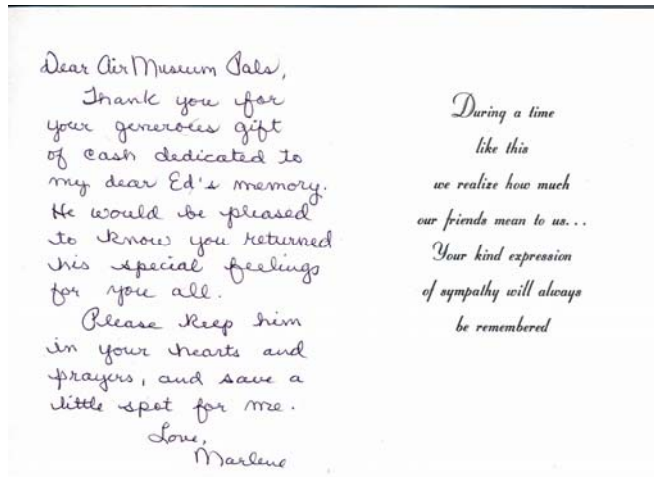 Dear Air Museum Pals,
Thank you for
your generous gift
of cash dedicated to
my dear Ed's memory.
He would be pleased
to know you returned
his special feelings
for you all.
Please keep him
in your hearts and
prayers, and save a
little spot for me.
Love,
Marlene
During a time
like this
we realize how much
our friends mean to us...
Your kind expression
of sympathy will always
be remembered